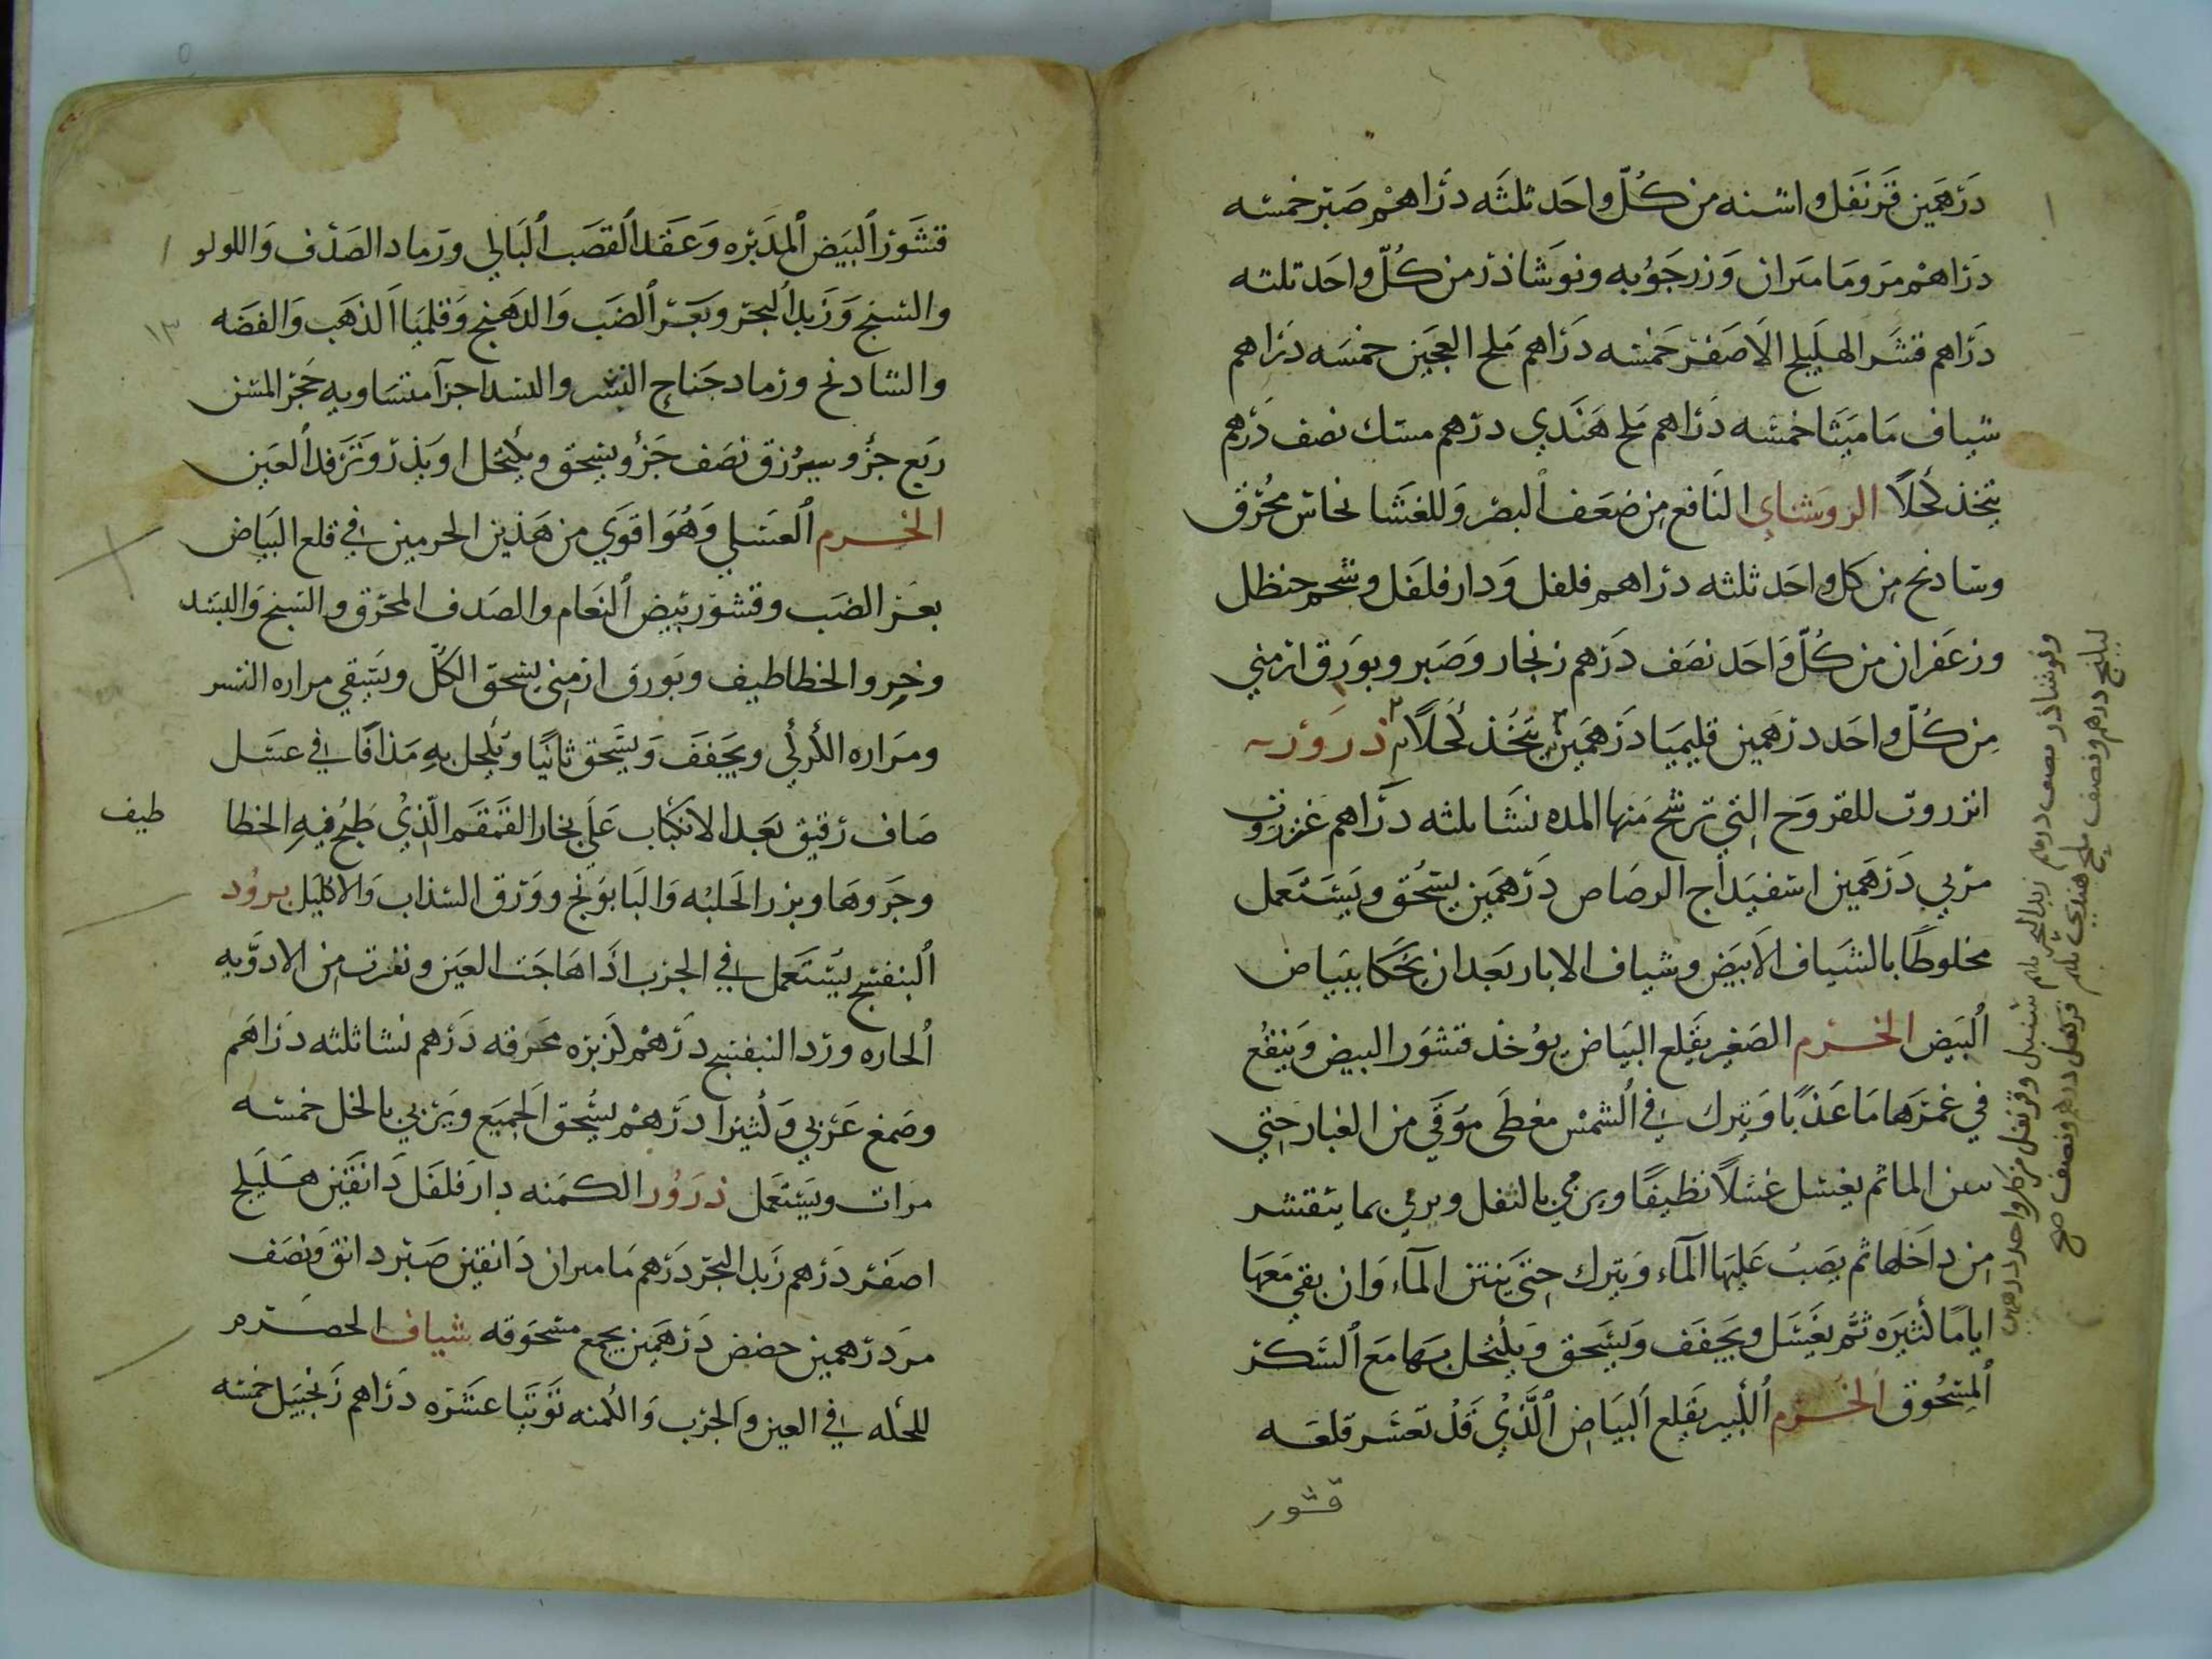 درهمين قرنفل واشنه من كل واحد ثلثه دراهم صبر خمسه
دراهم مر ومامىران وزرجوبه ونوشاذر من كل واحد ثلثه
دراهم قشر الهليلج الاصفر خمسه دراهم ملح العجين خمسه دراهم
شياف ماميثا خمسه دراهم ملح هندي درهم مسك نصف درهم
يتخذ كحلا الروشناي النافع من ضعف البصر وللغشا نحاس محرق
وشادنج من كل واحد ثلثه دراهم فلفل ودار فلفل وشحم حنظل
وزعفران من كل واحد نصف درهم زنجار وصبر وبورق ارمني
من كل واحد درهمين قليميا درهمين يتخذ كحلا ذرور
انزروت للقروح التي ترشح منها المده نشا ثلثه دراهم عنزروت
مربي درهمين اسفيداج الرصاص درهمين يسحق ويستعمل
مخلوطا بالشياف الابيض وشياف الابار بعد ان يحكا ببياض
البيض الخرم الصغير يقلع البياض يوخذ قشور البيض وينقع
في غمرها ما عذبا ويترك في الشمس مغطى موقي من الغبار حتي
ينتن الما ثم يغسل غسلا نظيفا ويرمي بالثفل ويرمي بما يتقشر
من داخلها ثم يصب عليها المآء ويترك حتى ينتن المآء وان بقي معها
اياما كثيره ثم يغسل ويجفف ويسحق ويكتحل بها مع السكر
المسحوق الخرم الكبير يقلع البياض الذي قد تعسر قلعه
قشور
ونوشاذر نصف درهم زبد البحر سنبل وقرنفل من كل واحد درهمين
درهم ونصف ملح هندي قرنفل درهم ونصف صح
قشور البيض المدبره وعقد القصب البالي ورماد الصدف واللولو
والشنج وزبد البحر وبعر الضب والدهنج وقلميا الذهب والفضه
والشادنج ورماد جناح النسر والبسد اجزآ متساويه حجر المسن
ربع جزؤ وسيرزق نصف جزؤ ويسحق ويكتحل او يذر وترفد العين
الخرم العسلي وهو اقوي من هذين الخرمين في قلع البياض
بعر الضب وقشور بيض النعام والصدف المحرق والشنج والبسد
وخرو الخطاطيف وبورق ارمني يسحق الكل ويسقي مراره النسر
ومراره الكركي ويجفف ويسحق ثانيا ويكحل به مذافا في عسل
صاف رقيق بعد الانكباب على بخار القمقم الذي طبخ فيه الخطا
طيف
وجروها وبزر الحلبه والبابونج وورق السذاب والاكليل برود
البنفسج يستعمل في الجرب اذا هاجت العين ونفرت من الادويه
الحاره ورد البنفسج درهم كزبره محرقه درهم نشا ثلثه دراهم
وصمغ عربي وكثيرا درهم يسحق الجميع ويربي بالخل خمسه
مرات ويستعمل ذرور الكمنه دار فلفل دانقين هليلج
اصفر درهم زبد البحر درهم مامىران دانقين صبر دانق ونصف
مر درهمين حضض درهمين يجمع مسحوقه شياف الحصرم
للحكه في العين والجرب والكمنه توتيا عشره دراهم زنجبيل خمسه
١٣